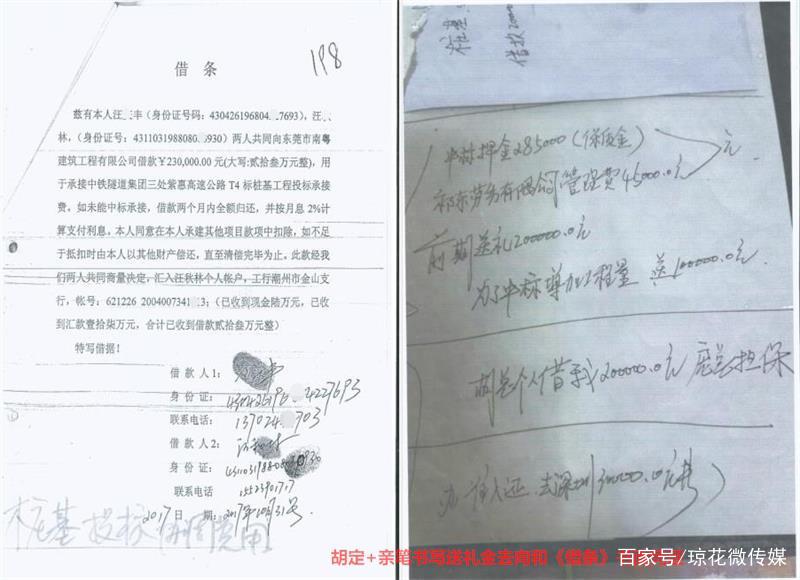 198
借 条
兹有本人汪 丰（身份证号码：430426196804 7693），汪
林，（身份证号：4311031988080 6930）两人共同向东莞市南粤
建筑工程有限公司借款￥230,000.00 元(大写:贰拾叁万元整)，用
于承接中铁隧道集团三处紫惠高速公路 T4 标桩基工程投标承接
费。如未能中标承接，借款两个月内全额归还，并按月息 2%计
算支付利息。本人同意在本人承建其他项目款项中扣除，如不足
于抵扣时由本人以其他财产偿还，直至清偿完毕为止。此款经我
们两人共同商量决定，汇入汪秋林个人帐户，工行潮州市金山支
行，帐号：621226 2004007341 3；（已收到现金陆万元，已收
到汇款壹拾柒万元，合计已收到借款贰拾叁万元整）
特写借据！
借 款 人1：
身 份 证：
联系电话：137024 703
借 款 人2：
身 份 证：
联系电话
日 期：2017年10月31号
桩基投标
2017
桩基
借款
中标押金285000（保质金）
祁东劳务有限公司管理费45000.0元
元
前期送礼200000.0元
为了中标增加工程量 送100000.0元
胡总个人借我200000.0元 庞总担保
去深圳
胡定+亲笔书写送礼金去向和《借条》
百家号/琼花微传媒